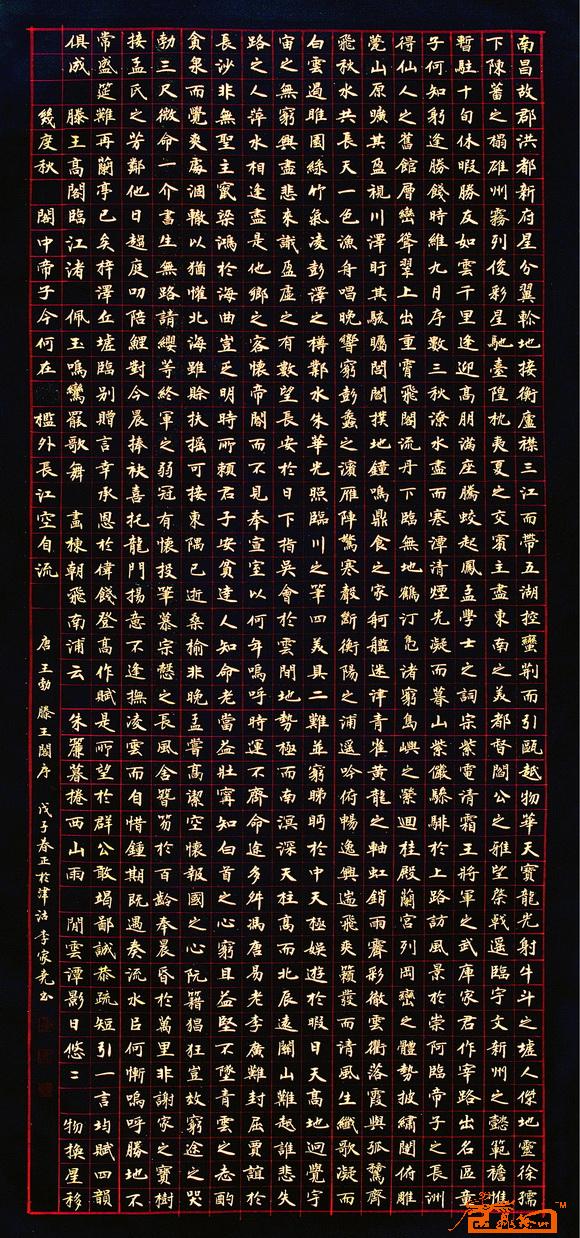 南昌故郡洪都新府星分翼軫地接衡廬襟三江而帶五湖控蠻荊而引甌越物華天寶龍光射牛斗之墟人傑地靈徐孺
下陳蕃之榻雄州霧列俊彩星馳臺隍枕夷夏之交賓主盡東南之美都督閻公之雅望棨戟遙臨宇文新州之懿範襜帷
暫駐十旬休暇勝友如雲千里逢迎高朋滿座騰蛟起鳳孟學士之詞宗紫電清霜王將軍之武庫家君作宰路出名區童
子何知躬逢勝餞時維九月序數三秋潦水盡而寒潭清煙光凝而暮山紫儼驂騑於上路訪風景於崇阿臨帝子之長洲
得仙人之舊館層巒聳翠上出重霄飛閣流丹下臨無地鶴汀鳧渚窮島嶼之縈迴桂殿蘭宮列岡巒之體勢披繡闥俯雕
甍山原曠其盈視川澤盱其駭矚閭閻撲地鐘鳴鼎食之家舸艦迷津青雀黃龍之軸虹銷雨霽彩徹雲衢落霞與孤鶩齊
飛秋水共長天一色漁舟唱晚響窮彭蠡之濱雁陣驚寒聲斷衡陽之浦遙吟俯暢逸興遄飛爽籟發而清風生纖歌凝而
白雲遏睢園綠竹氣凌彭澤之樽鄴水朱華光照臨川之筆四美具二難並窮睇眄於中天極娛遊於暇日天高地迥覺宇
宙之無窮興盡悲來識盈虛之有數望長安於日下指吳會於雲間地勢極而南溟深天柱高而北辰遠關山難越誰悲失
路之人萍水相逢盡是他鄉之客懷帝閽而不見奉宣室以何年嗚呼時運不齊命途多舛馮唐易老李廣難封屈賈誼於
長沙非無聖主竄梁鴻於海曲豈乏明時所賴君子安貧達人知命老當益壯寧知白首之心窮且益堅不墜青雲之志酌
貪泉而覺爽處涸轍以猶懽北海雖賒扶搖可接東隅已逝桑榆非晚孟嘗高潔空懷報國之心阮籍猖狂豈效窮途之哭
勃三尺微命一介書生無路請纓等終軍之弱冠有懷投筆慕宗愨之長風舍簪笏於百齡奉晨昏於萬里非謝家之寶樹
接孟氏之芳鄰他日趨庭叨陪鯉對今晨捧袂喜托龍門楊意不逢撫凌雲而自惜鍾期既遇奏流水以何慚嗚呼勝地不
常盛筵難再蘭亭已矣梓澤丘墟臨別贈言幸承恩於偉餞登高作賦是所望於群公敢竭鄙誠恭疏短引一言均賦四韻
俱成 滕王高閣臨江渚 佩玉鳴鸞罷歌舞 畫棟朝飛南浦云 朱簾暮捲西山雨 閒雲潭影日悠〻 物換星移
幾度秋 閣中帝子今何在 檻外長江空自流 唐 王勃 滕王閣序 戊子春正於津沽李家堯書